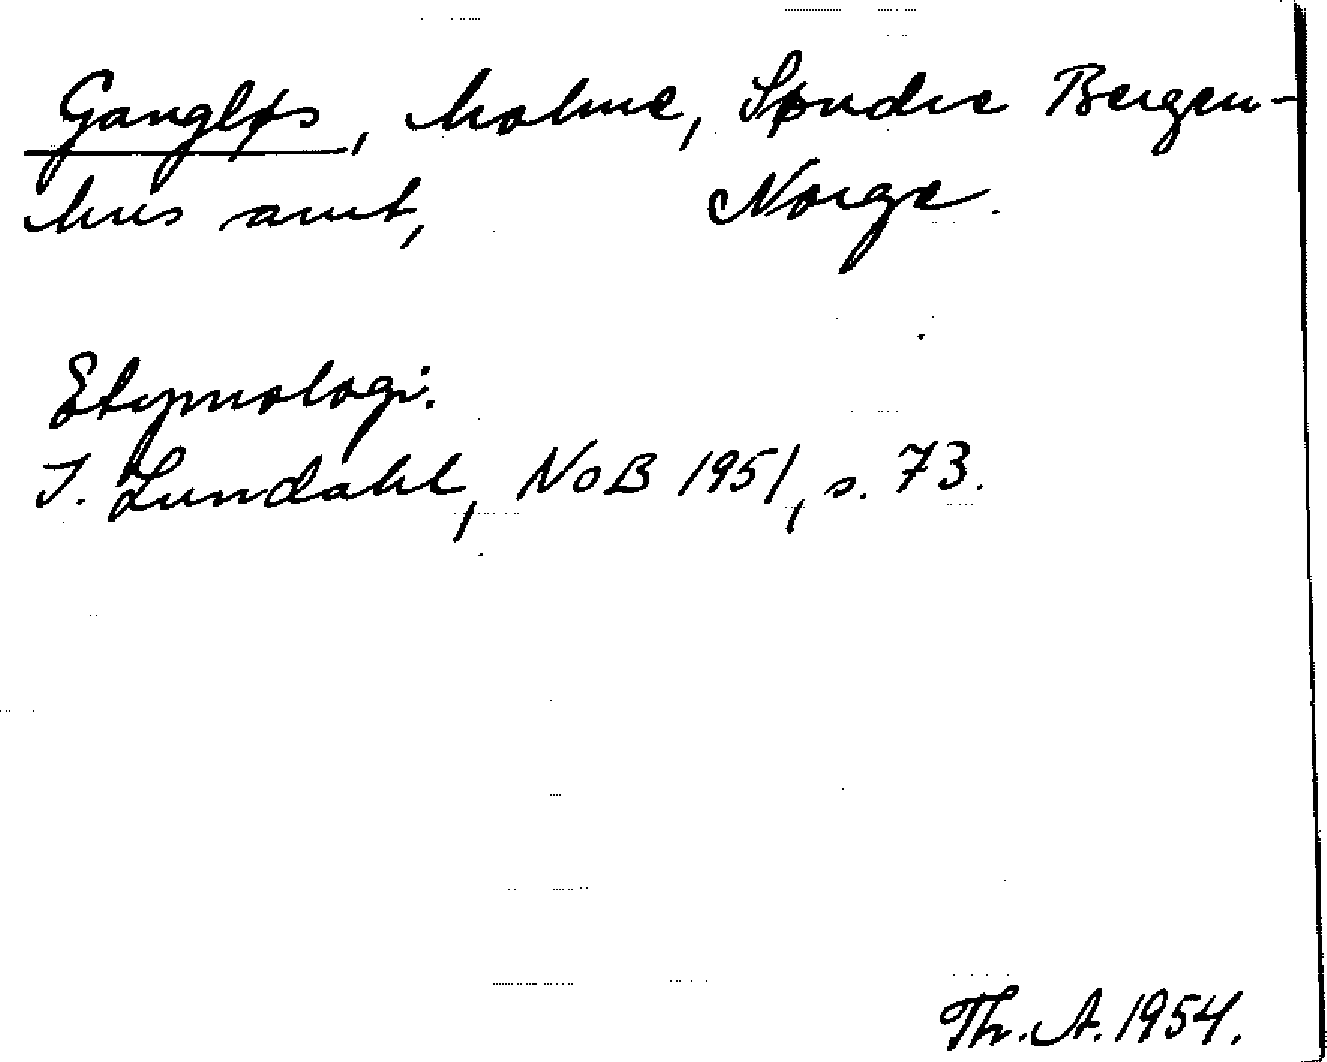 Gangløs, holme, Søndre Bergen-
hus amt, Norge.
Etymologi:
I. Lundahl, NoB 1951, s. 73.
Th. A. 1954.